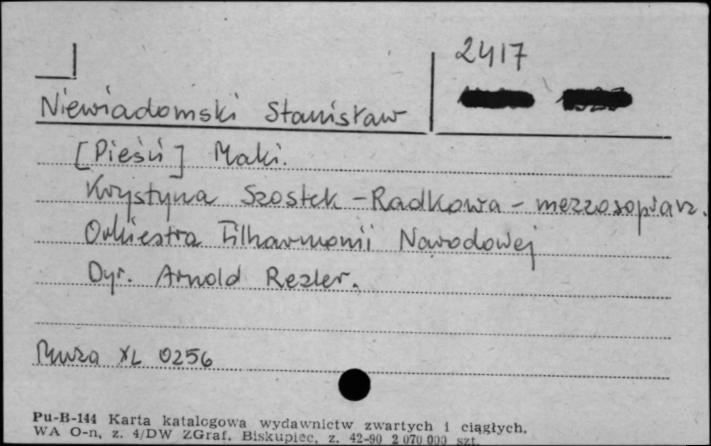 2417
Niewiadomski Stanisław
[Pieśń] Maki.
Krystyna Szostek-Radkowa - mezzosopran.
Orkiestra Filharmonii Narodowej
Dyr. Arnold Rezler.
Muza XL 0256
Pu-B-144 Karta katalogowa wydawnictw zwartych i ciągłych.
WA O-n, z. 4/DW ZGraf. Biskupiec, z. 42-90 2 070 000 szt.